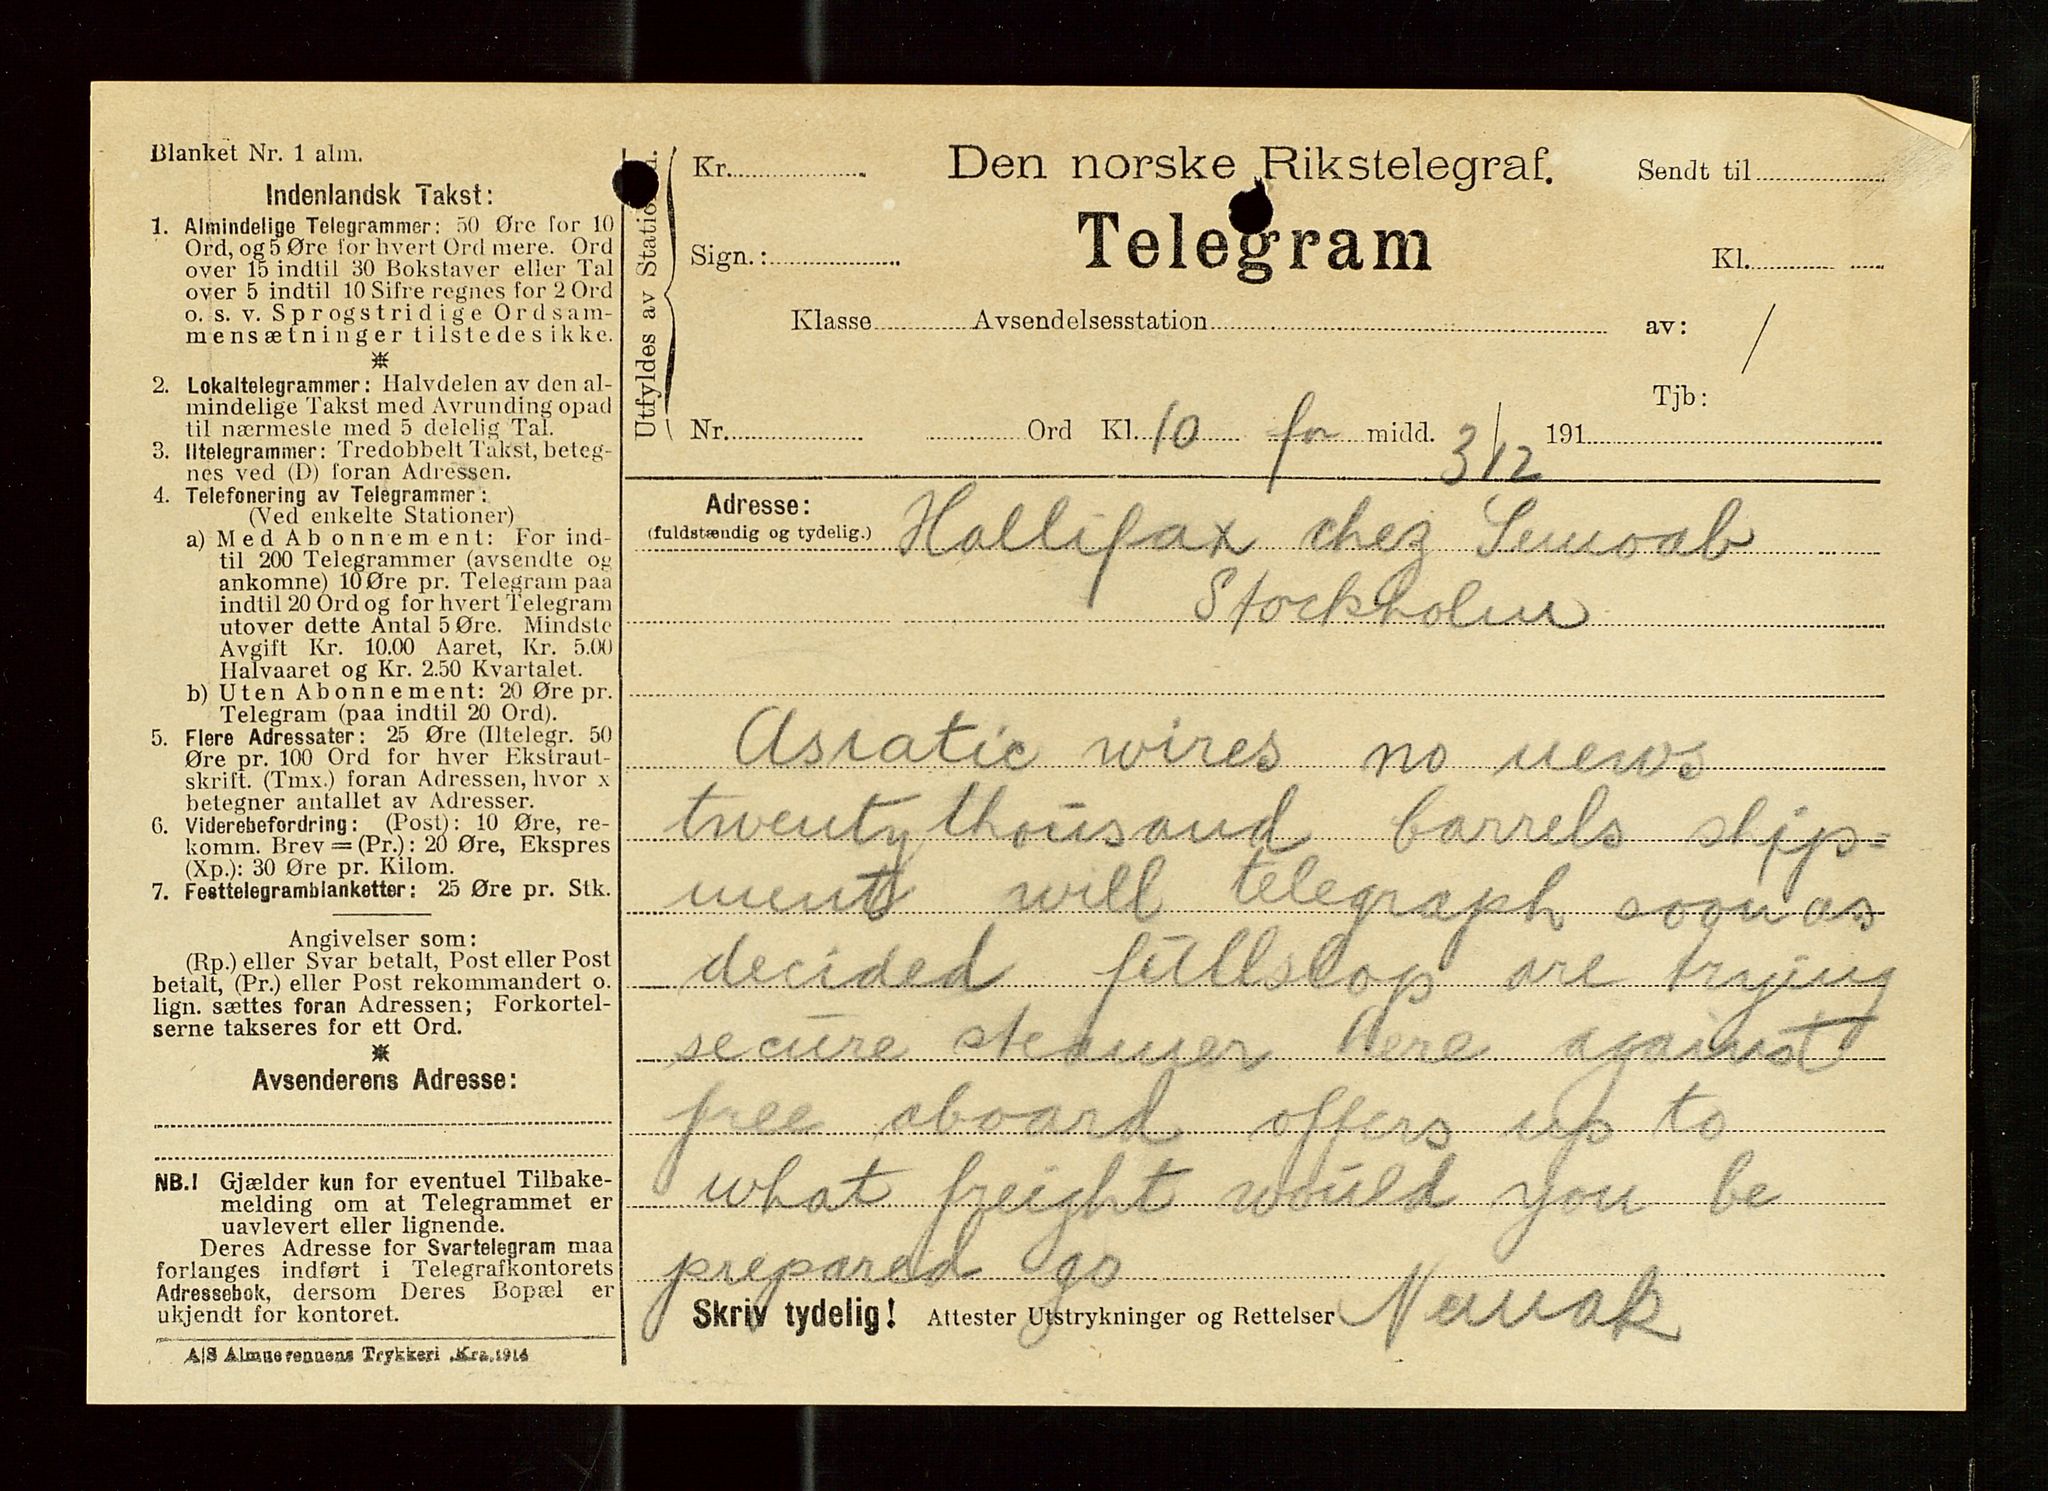 Blanket Nr. 1 alm.
Indenlandsk Takst:
1. Almindelige Telegrammer: 50 Øre for 10
Ord, og 5 Øre for hvert Ord mere. Ord
over 15 indtil 30 Bokstaver eller Tal
over 5 indtil 10 Sifre regnes for 2 Ord
o. s. v. Sprogstridige Ordsam-
mensætninger tilstedes ikke.
2. Lokaltelegrammer: Halvdelen av den al-
mindelige Takst med Avrunding opad
til nærmeste med 5 delelig Tal.
3. Iltelegrammer: Tredobbelt Takst, beteg-
nes ved (D) foran Adressen.
4. Telefonering av Telegrammer:
(Ved enkelte Stationer)
a) Med Abonnement: For ind-
til 200 Telegrammer (avsendte og
ankomne) 10 Øre pr. Telegram paa
indtil 20 Ord og for hvert Telegram
utover dette Antal 5 Øre. Mindste
Avgift Kr. 10.00 Aaret, Kr. 5.00
Halvaaret og Kr. 2.50 Kvartalet.
b) Uten Abonnement: 20 Øre pr.
Telegram (paa indtil 20 Ord).
5. Flere Adressater: 25 Øre (Iltelegr. 50
Øre pr. 100 Ord for hver Ekstraut-
skrift. (Tmx.) foran Adressen, hvor x
betegner antallet av Adresser.
6. Viderebefordring: (Post): 10 Øre, re-
komm. Brev = (Pr.): 20 Øre, Ekspres
(Xp.): 30 Øre pr. Kilom.
7. Festtelegramblanketter: 25 Øre pr. Stk.
Angivelser som:
(Rp.) eller Svar betalt, Post eller Post
betalt, (Pr.) eller Post rekommandert o.
lign. sættes foran Adressen; Forkortel-
serne takseres for ett Ord.
Avsenderens Adresse:
NB.! Gjælder kun for eventuel Tilbake-
melding om at Telegrammet er
uavlevert eller lignende.
Deres Adresse for Svartelegram maa
forlanges indført i Telegrafkontorets
Adressebok, dersom Deres Bopæl er
ukjendt for kontoret.
A/S Almuevennens Trykkeri, Kra. 1914
Utfyldes av Stationen.
Kr.
Den norske Rikstelegraf.
Sendt til
Sign.:
Telegram
Kl.
Klasse Avsendelsesstation av: /
Tjb:
Nr. Ord Kl. 10 for midd. 3/12 191
Adresse: Hallifax chez Semoab
(fuldstændig og tydelig.)
Stockholm
Asiatic wires no news
twentythousand barrels ship=
ment will telegraph soon as
decided fullstop are trying
secure steamer here against
free aboard offers up to
what freight would you be
prepared go
Skriv tydelig! Attester Utstrykninger og Rettelser